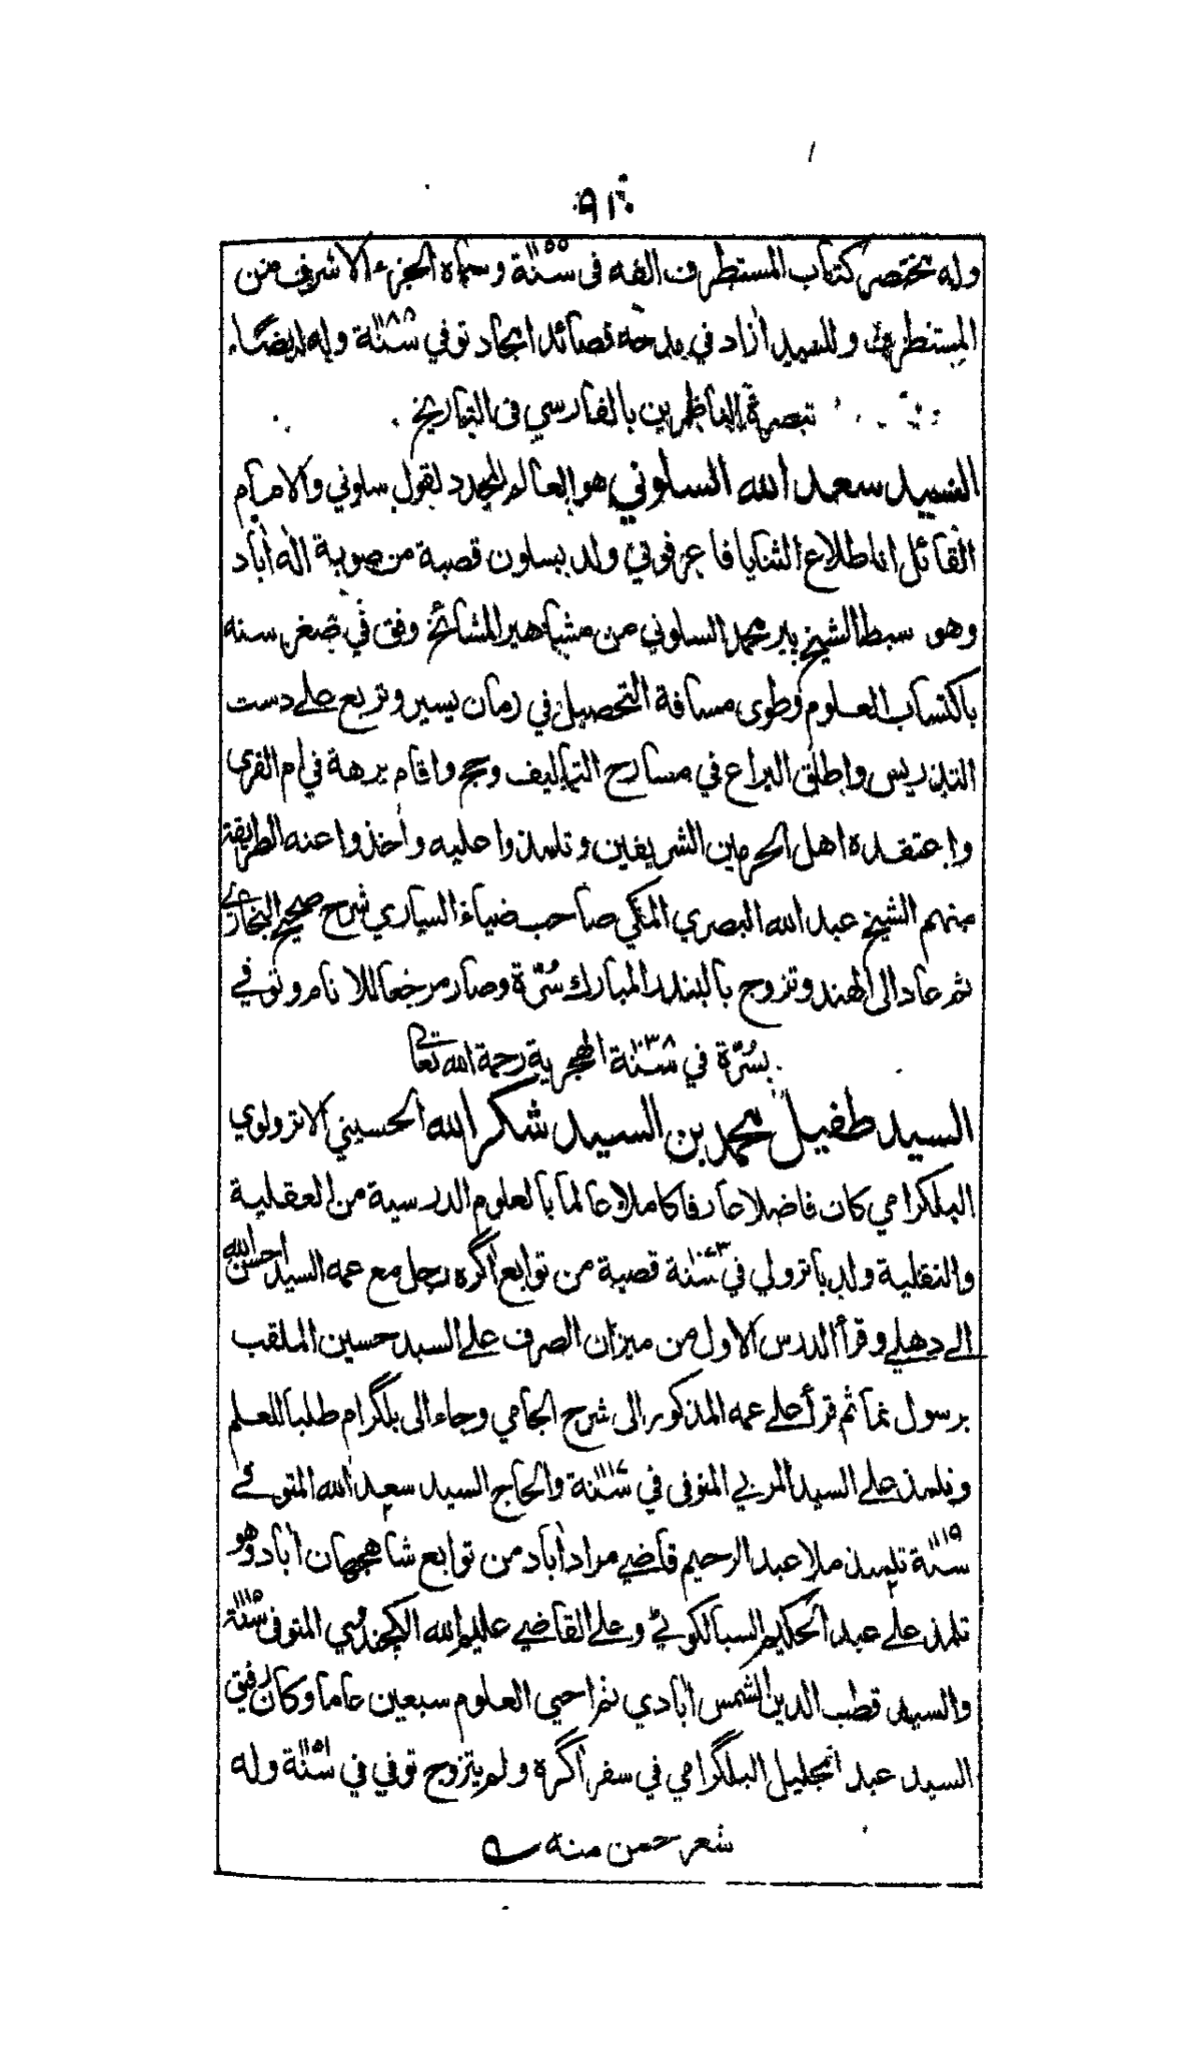 ٩١٠
وله مختصر كتاب المستطرف الفه فى سنة ١١٥٥ وسماه الجزء الاشرف من
المستطرف وللسيد آزاد في مدحه قصائد اجاد توفي سنة وله ايضا
تبصرة الناظرين بالفارسي فى التاريخ
السيد سعد الله السلوني هو العالم المجدد لقول سلوني والامام
القائل انا طلاع الثنايا فاعرفوني ولد ببسلون قصبة من صوبة اله آباد
وهو سبط الشيخ پير محمد السلوني من مشاهير المشائخ وفق في صغر سنه
باكتساب العلوم وطوى مسافة التحصيل في زمان يسير وتربع على دست
التدريس واطلق اليراع في مسارح التاليف وحج واقام برهة في ام القرى
واعتقده اهل الحرمين الشريفين وتلمذوا عليه واخذوا عنه الطريقة
منهم الشيخ عبد الله البصري المكي صاحب ضياء الساري شرح صحيح البخاري
ثم عاد الى الهند وتزوج بالبندر المبارك سُرّة وصار مرجعا للانام وتوفي
بسُرّة في سنة ١١٣٨ الهجرية رحمة الله تعالى
السيد طفيل محمد بن السيد شكر الله الحسيني الاترولوي
البلكرامي كان فاضلا عارفا كاملا عالما بالعلوم الدرسية من العقلية
والنقلية ولد باترولي في سنة ١٠٧٣ قصبة من توابع آگره رحل مع عمه السيد احسن الله
الى دهلي وقرأ الدرس الاول من ميزان الصرف على السيد حسين الملقب
برسول نما ثم قرأ على عمه المذكور الى شرح الجامي وجاء الى بلگرام طلبا للعلم
وتلمذ على السيد المربي المتوفى في سنة ١١١٧ والحاج السيد سعد الله المتوفى
سنة ١١١٩ تلميذ ملا عبد الرحيم قاضي مرادآباد من توابع شاهجهان آباد وهو
تلمذ على عبد الحكيم السيالكوٹي وعلى القاضي عليم الله الكچندوي المتوفى سنة ١١١٥
والسيد قطب الدين الشمس آبادي ثم احيى العلوم سبعين عاما وكان رفيق
السيد عبد الجليل البلگرامي في سفر آگرة ولم يتزوج توفي في سنة ١١٥١ وله
شعر حسن منه